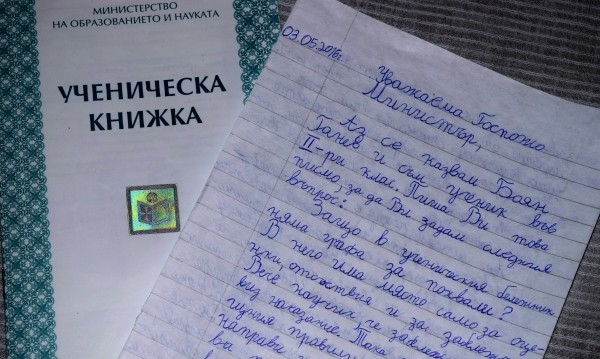 МИНИСТЕРСТВО
НА ОБРАЗОВАНИЕТО И НАУКАТА
УЧЕНИЧЕСКА
КНИЖКА
03.05.2016г.
Уважаема Госпожо
Министър,
Аз се казвам Боян
Ганев и съм ученик във
II-ри клас. Пиша Ви това
писмо, за да Ви задам следния
въпрос:
Защо в ученическия бележник
няма графа за похвали?
В него има място само за оце-
нки, отсъствия и за: забележ
Вече научих, че забележ
виз наказание. Така
щения правил
направи
ва